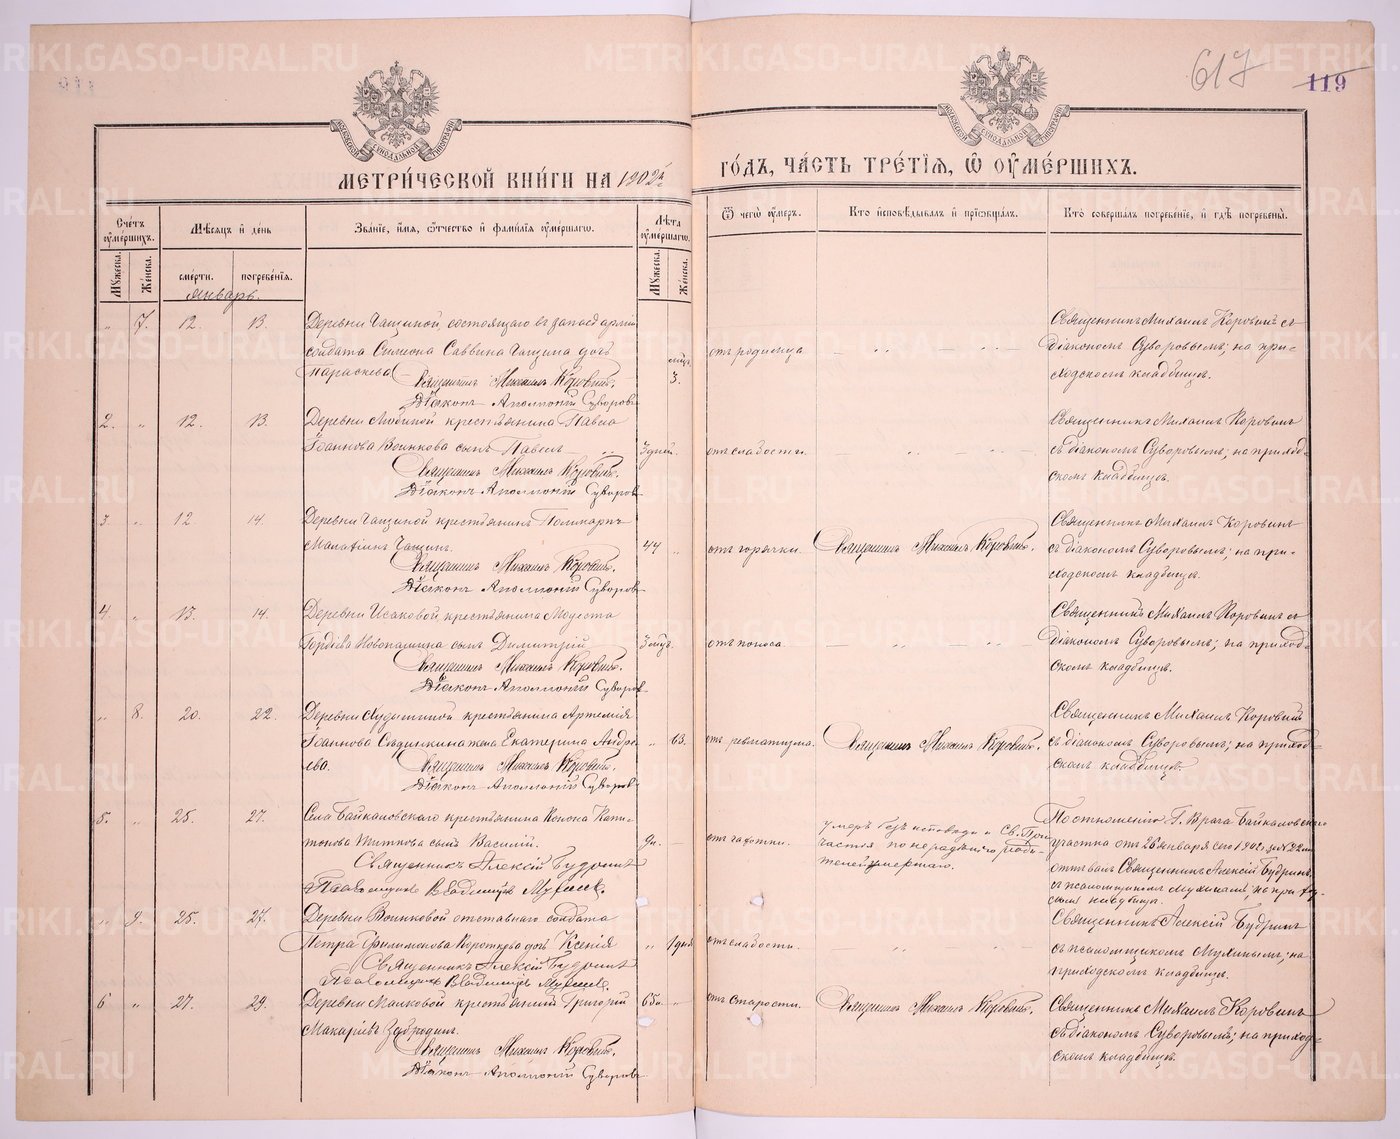 617
119
МЕТРИ́ЧЕСКОЙ КНИ́ГИ НА 1902й
ГО́ДЪ, ЧА́СТЬ ТРЕ́ТІЯ, Ѡ҆ ОУ҆МЕ́РШИХЪ.
Сче́тъ оу҆ме́ршихъ.
Мꙋ́жеска.
Же́нска.
Мѣ́сяцъ и҆ де́нь
сме́рти.
погребе́нїя.
Зва́нїе, и҆́мя, ѻ҆́тчество и҆ фами́лїя оу҆ме́ршаго.
Лѣ́та оу҆ме́ршаго.
Мꙋ́жеска.
Же́нска.
Ѿ чегѡ̀ оу҆́меръ.
Кто̀ и҆сповѣ́дывалъ и҆ прїѡбща́лъ.
Кто̀ соверша́лъ погребе́нїе, и҆ гдѣ̀ погребены̀.
январь.
„ 7. 12. 13.
Деревни Чащиной, состоящаго въ запасѣ арміи
солдата Симеона Саввина Чащина дочь
Параскева
Священникъ Михаилъ Коровинъ.
Діаконъ Аполлоній Суворовъ
3.
отъ родимца.
Священникъ Михаилъ Коровинъ съ
діакономъ Суворовымъ; на при-
ходскомъ кладбищѣ.
2. „ 12. 13.
Деревни крестьянина Павла
Іоаннова Воинкова сынъ Павелъ
Священникъ Михаилъ Коровинъ.
Діаконъ Аполлоній Суворовъ
3 дней.
отъ слабости.
Священникъ Михаилъ Коровинъ
съ діакономъ Суворовымъ; на приход-
скомъ кладбищѣ.
3. „ 12. 14.
Деревни Чащиной крестьянинъ Поликарпъ
Чащинъ.
Священникъ Михаилъ Коровинъ.
Діаконъ Аполлоній Суворовъ
44 „
отъ горячки.
Священникъ Михаилъ Коровинъ.
Священникъ Михаилъ Коровинъ
съ діакономъ Суворовымъ; на при-
ходскомъ кладбищѣ.
4 „ 13. 14.
Деревни Исаковой крестьянина Модеста
Гордѣева Новопашина сынъ Димитрій
Священникъ Михаилъ Коровинъ.
Діаконъ Аполлоній Суворовъ
3 мѣц.
отъ поноса.
Священникъ Михаилъ Коровинъ съ
діакономъ Суворовымъ; на приход-
скомъ кладбищѣ.
„ 8. 20. 22.
Деревни крестьянина Артемія
Іоаннова жена Екатерина Андре-
ева.
Священникъ Михаилъ Коровинъ.
Діаконъ Аполлоній Суворовъ
„ 63.
отъ ревматизма.
Священникъ Михаилъ Коровинъ.
Священникъ Михаилъ Коровинъ
съ діакономъ Суворовымъ; на приход-
скомъ кладбищѣ.
5. „ 25. 27.
Села Байкаловскаго крестьянина Конона Капи-
тонова сынъ Василій.
Священникъ Алексій Будринъ
Псаломщикъ Владиміръ Мухинъ.
отъ чахотки.
умеръ безъ исповѣди и Св. При-
частія по нерадѣнію роди-
телей умершаго.
По отношенію Г. Врача Байкаловскаго
участка отъ 26 января сего 1902 г. за № 32
отпѣвалъ Священникъ Алексій Будринъ
съ псаломщикомъ Мухинымъ, на приход-
скомъ кладбищѣ.
„ 9. 25. 27.
Деревни Воинковой отставнаго солдата
Петра Филимонова дочь Ксенія
Священникъ Алексій Будринъ
Псаломщикъ Владиміръ Мухинъ.
„ 1 дня
отъ слабости.
Священникъ Алексій Будринъ
съ псаломщикомъ Мухинымъ; на
приходскомъ кладбищѣ.
6 „ 27. 29.
Деревни крестьянинъ Григорій
Макаріевъ Забродинъ.
Священникъ Михаилъ Коровинъ.
Діаконъ Аполлоній Суворовъ
65 „
отъ старости.
Священникъ Михаилъ Коровинъ.
Священникъ Михаилъ Коровинъ
съ діакономъ Суворовымъ; на приход-
скомъ кладбищѣ.
METRIKI.GASO-URAL.RU